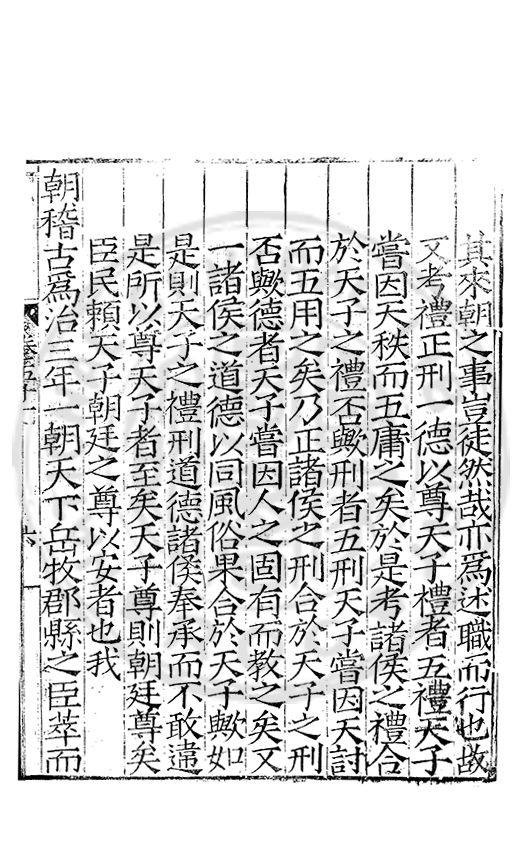 其來朝之事豈徒然哉亦爲述職而行也故
又考禮正刑一德以尊天子禮者五禮天子
嘗因天秩而五庸之矣於是考諸侯之禮合
於天子之禮否歟刑者五刑天子嘗因天討
而五用之矣乃正諸侯之刑合於天子之刑
否歟德者天子嘗因人之固有而教之矣又
一諸侯之道德以同風俗果合於天子歟如
是則天子之禮刑道德諸侯奉承而不敢違
是所以尊天子者至矣天子尊則朝廷尊矣
臣民賴天子朝廷之尊以安者也我
朝稽古爲治三年一朝天下岳牧郡縣之臣萃而